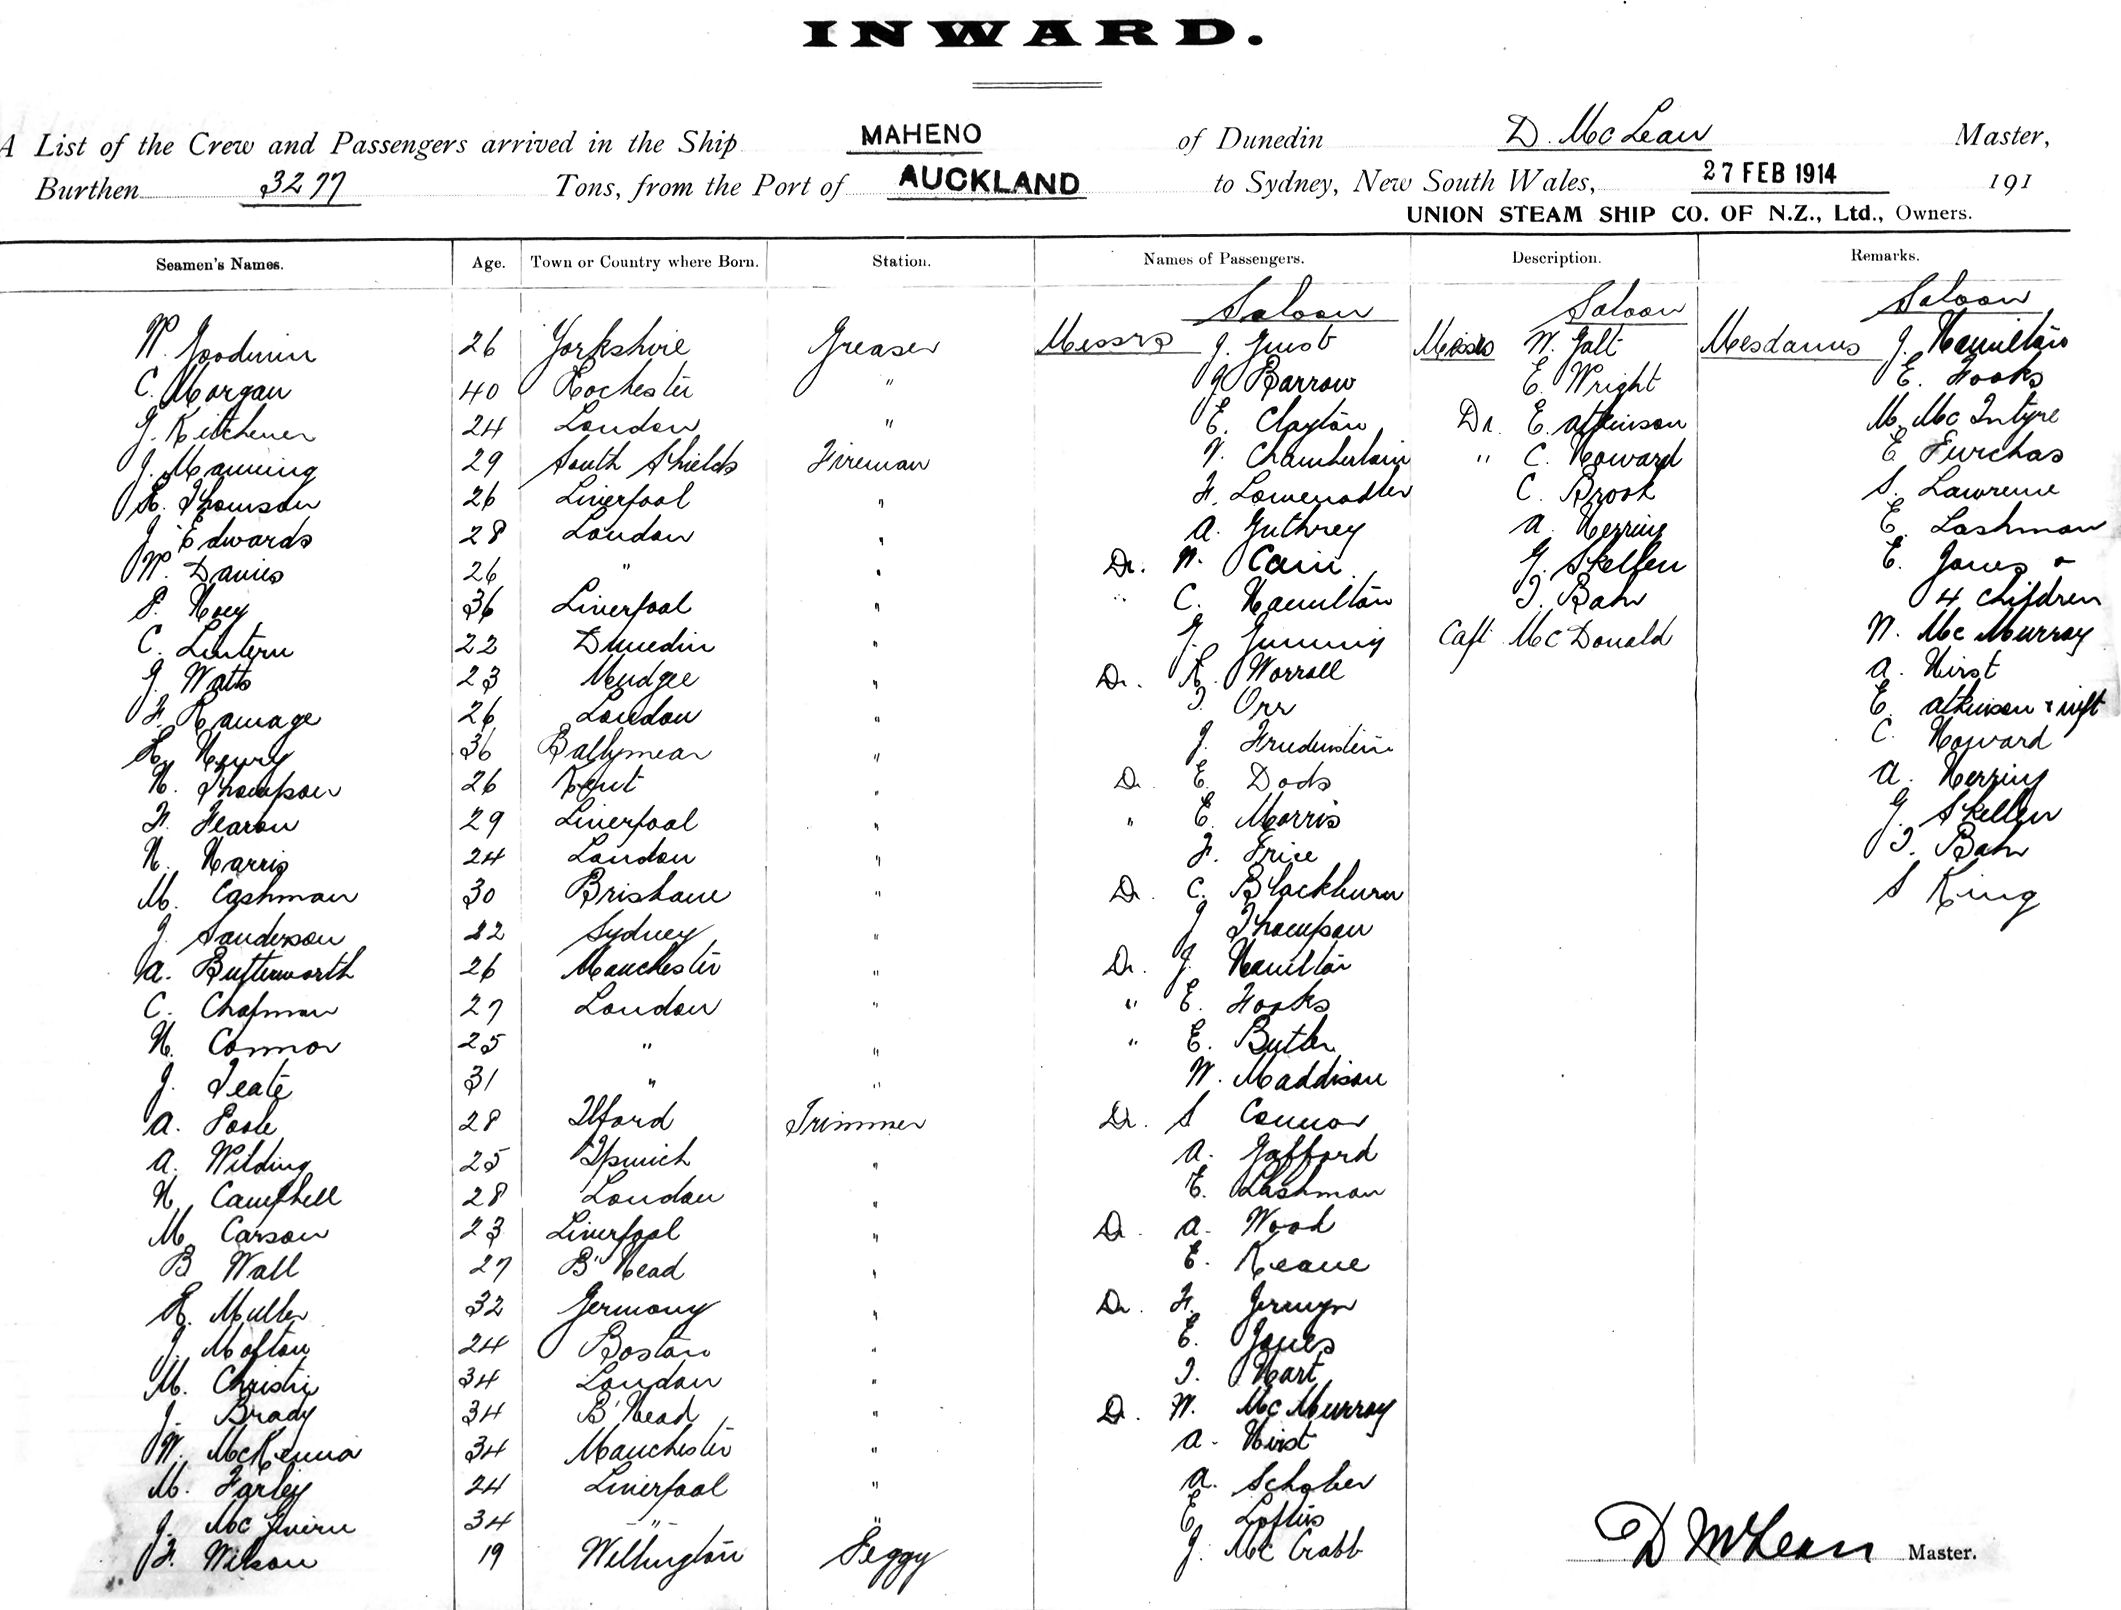 INWARD.
A List of the Crew and Passengers arrived in the Ship MAHENO of Dunedin D. McLean Master,
Burthen 3277 Tons, from the Port of AUCKLAND to Sydney, New South Wales, 27 FEB 1914 191
UNION STEAM SHIP CO. OF N.Z., Ltd., Owners.
Seamen's Names. Age. Town or Country where Born. Station. Names of Passengers. Description. Remarks.
Saloon Saloon Saloon
W. Goodwin 26 Yorkshire Greaser Messrs J. Just Messrs W. Galt Mesdames J. Hamilton
C. Morgan 40 Rochester " J. Barrow E. Wright E. Fooks
J. Kitchener 24 London " E. Clayton Dr. E. Atkinson M. McIntyre
J. Manning 29 South Shields Fireman V. Chamberlain " C. Howard E Purchas
R. Thomson 26 Liverpool " F. C. Brook S. Lawrence
J. Edwards 28 London " A. Guthrey A. Herring E. Lashman
W. Davies 26 " " Dr. W. Cain G. Skellen E. Jones &
P. Hoey 36 Liverpool " " C. Hamilton T. Bahr 4 children
C. Lintern 22 Dunedin " G. Capt McDonald W. McMurray
G. Watts 23 Mudgee " Dr. R. Worrall A. Hirst
F. Ramage 26 London " T. Orr E. Atkinson & inft
R. Henry 36 Ballymena " J. C. Howard
H. Thompson 26 Kent " Dr. E. Dods A. Herring
F. Fearon 29 Liverpool " " E. Morris G. Skellen
H. Harris 24 London " F. Price T. Bahr
M. Cashman 30 Brisbane " Dr. C. Blackburn S King
J. Sanderson 22 Sydney " J Thompson
A. Butterworth 26 Manchester " Dr. J. Hamilton
C. Chapman 27 London " " E. Fooks
H. Connor 25 " " " E. Butler
J. Teate 31 " " W. Maddison
A. Poole 28 Ilford Trimmer Dr. S Connor
A. Wilding 25 Ipswich " A. Gafford
H. Campbell 28 London " E. Lashman
M. Carson 23 Liverpool " Dr. A. Wood
B Wall 27 B'Head " E. Keane
R. Muller 32 Germany " Dr. F. Jermyn
J. Mofton 24 Boston " E. Jones
M. Christie 34 London " T. Hart
J. Brady 34 B'Head " Dr. W. McMurray
W. McKenna 34 Manchester " A. Hirst
M. Farley 24 Liverpool " A. Schober
J. McGivern 34 " " E. Loftus
F. Wilson 19 Wellington Peggy J. McCrabb
D McLean Master.